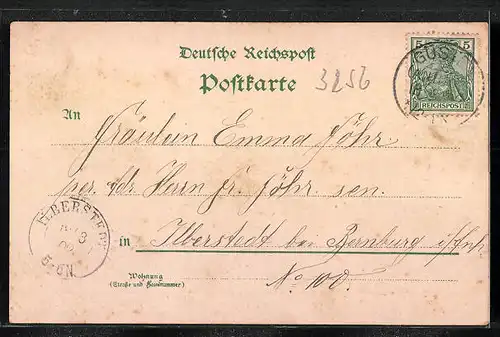 Deutsche Reichspost
Postkarte
3256
5 5
REICHSPOST
An
Fräulein Emma Föhr
per. Adr. Herrn Fr. Föhr sen.
ILBERSTEDT
in Ilberstedt bei Bernburg i/Anh.
Wohnung
(Straße und Hausnummer)
No 100.